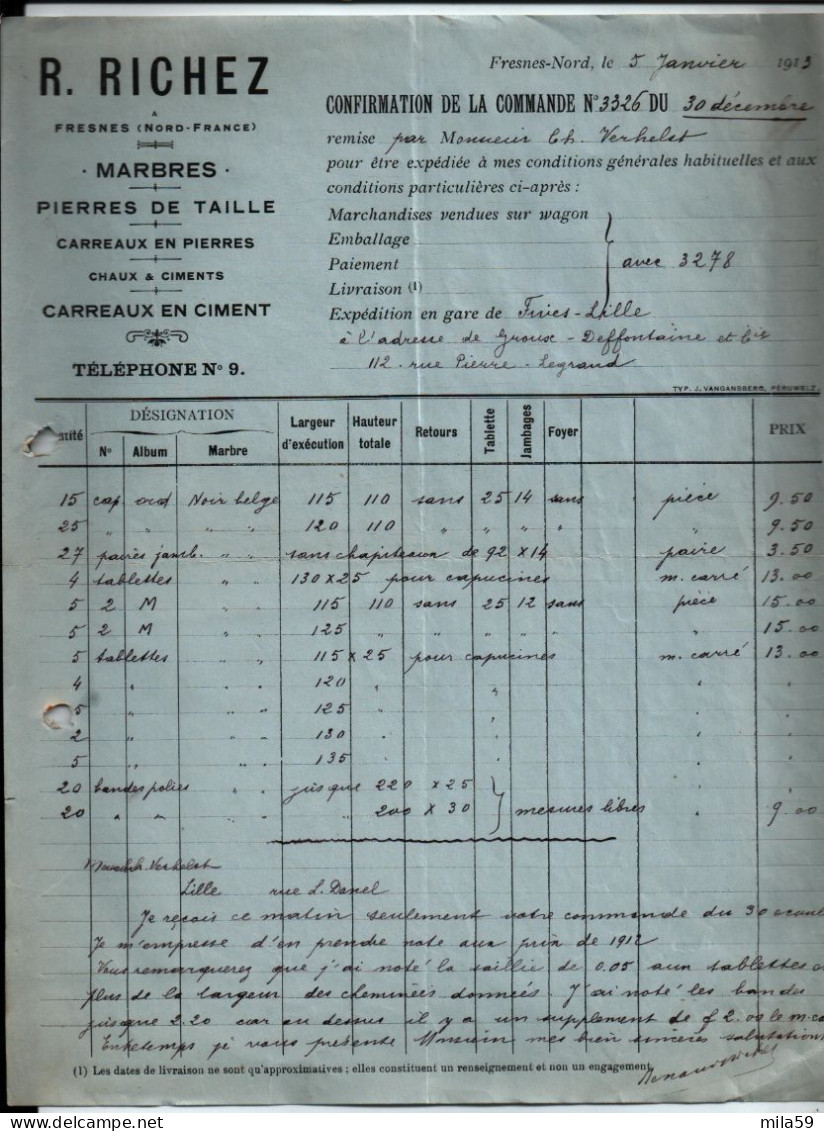 R. RICHEZ
A
FRESNES (NORD-FRANCE)
· MARBRES ·
PIERRES DE TAILLE
CARREAUX EN PIERRES
CHAUX & CIMENTS
CARREAUX EN CIMENT
TÉLÉPHONE N° 9.
Fresnes-Nord, le 5 Janvier 1913
CONFIRMATION DE LA COMMANDE N° 3326 DU 30 décembre
remise par Monsieur Ch. Verhelst
pour être expédiée à mes conditions générales habituelles et aux
conditions particulières ci-après :
Marchandises vendues sur wagon
Emballage
Paiement avec 3278
Livraison (1)
Expédition en gare de Fives-Lille
à l'adresse de Groux-Deffontaine et Cie
112 rue Pierre-Legrand
TYP. J. VANGANSBERG, PÉRUWELZ.
DÉSIGNATION
N° Album Marbre Largeur d'exécution Hauteur totale Retours Tablette Jambages Foyer PRIX
15 cap. ord Noir belge 115 110 sans 25 14 sans pièce 9.50
25 " " " " 120 110 " " " " " 9.50
27 paires jamb. " " sans chapiteaux de 92 x 14 paire 3.50
4 tablettes " " 130 x 25 pour capucines m. carré 13.00
5 2 M " 115 110 sans 25 12 sans pièce 15.00
5 2 M " 125 " " " " " " 15.00
5 tablettes " " 115 x 25 pour capucines m. carré 13.00
4 " " " 120 " " " "
5 " " " 125 " " " "
2 " " " 130 " " " "
5 " " " 135 " " "
20 bandes polies jusque 220 x 25
20 " " " " 200 x 30 mesures libres " 9.00
Verhelst
Lille rue L. Danel
Je reçois ce matin seulement votre commande du 30
Je m'empresse d'en prendre note aux prix de 1912
Vous remarquerez que j'ai noté la saillie de 0.05 aux tablettes
plus de la largeur des cheminées données. J'ai noté les bandes
jusque 2.20 car au dessus il y a un supplément de f 2.00 le m.
Entretemps je vous présente Monsieur mes bien sincères salutations
(1) Les dates de livraison ne sont qu'approximatives ; elles constituent un renseignement et non un engagement.
mila59